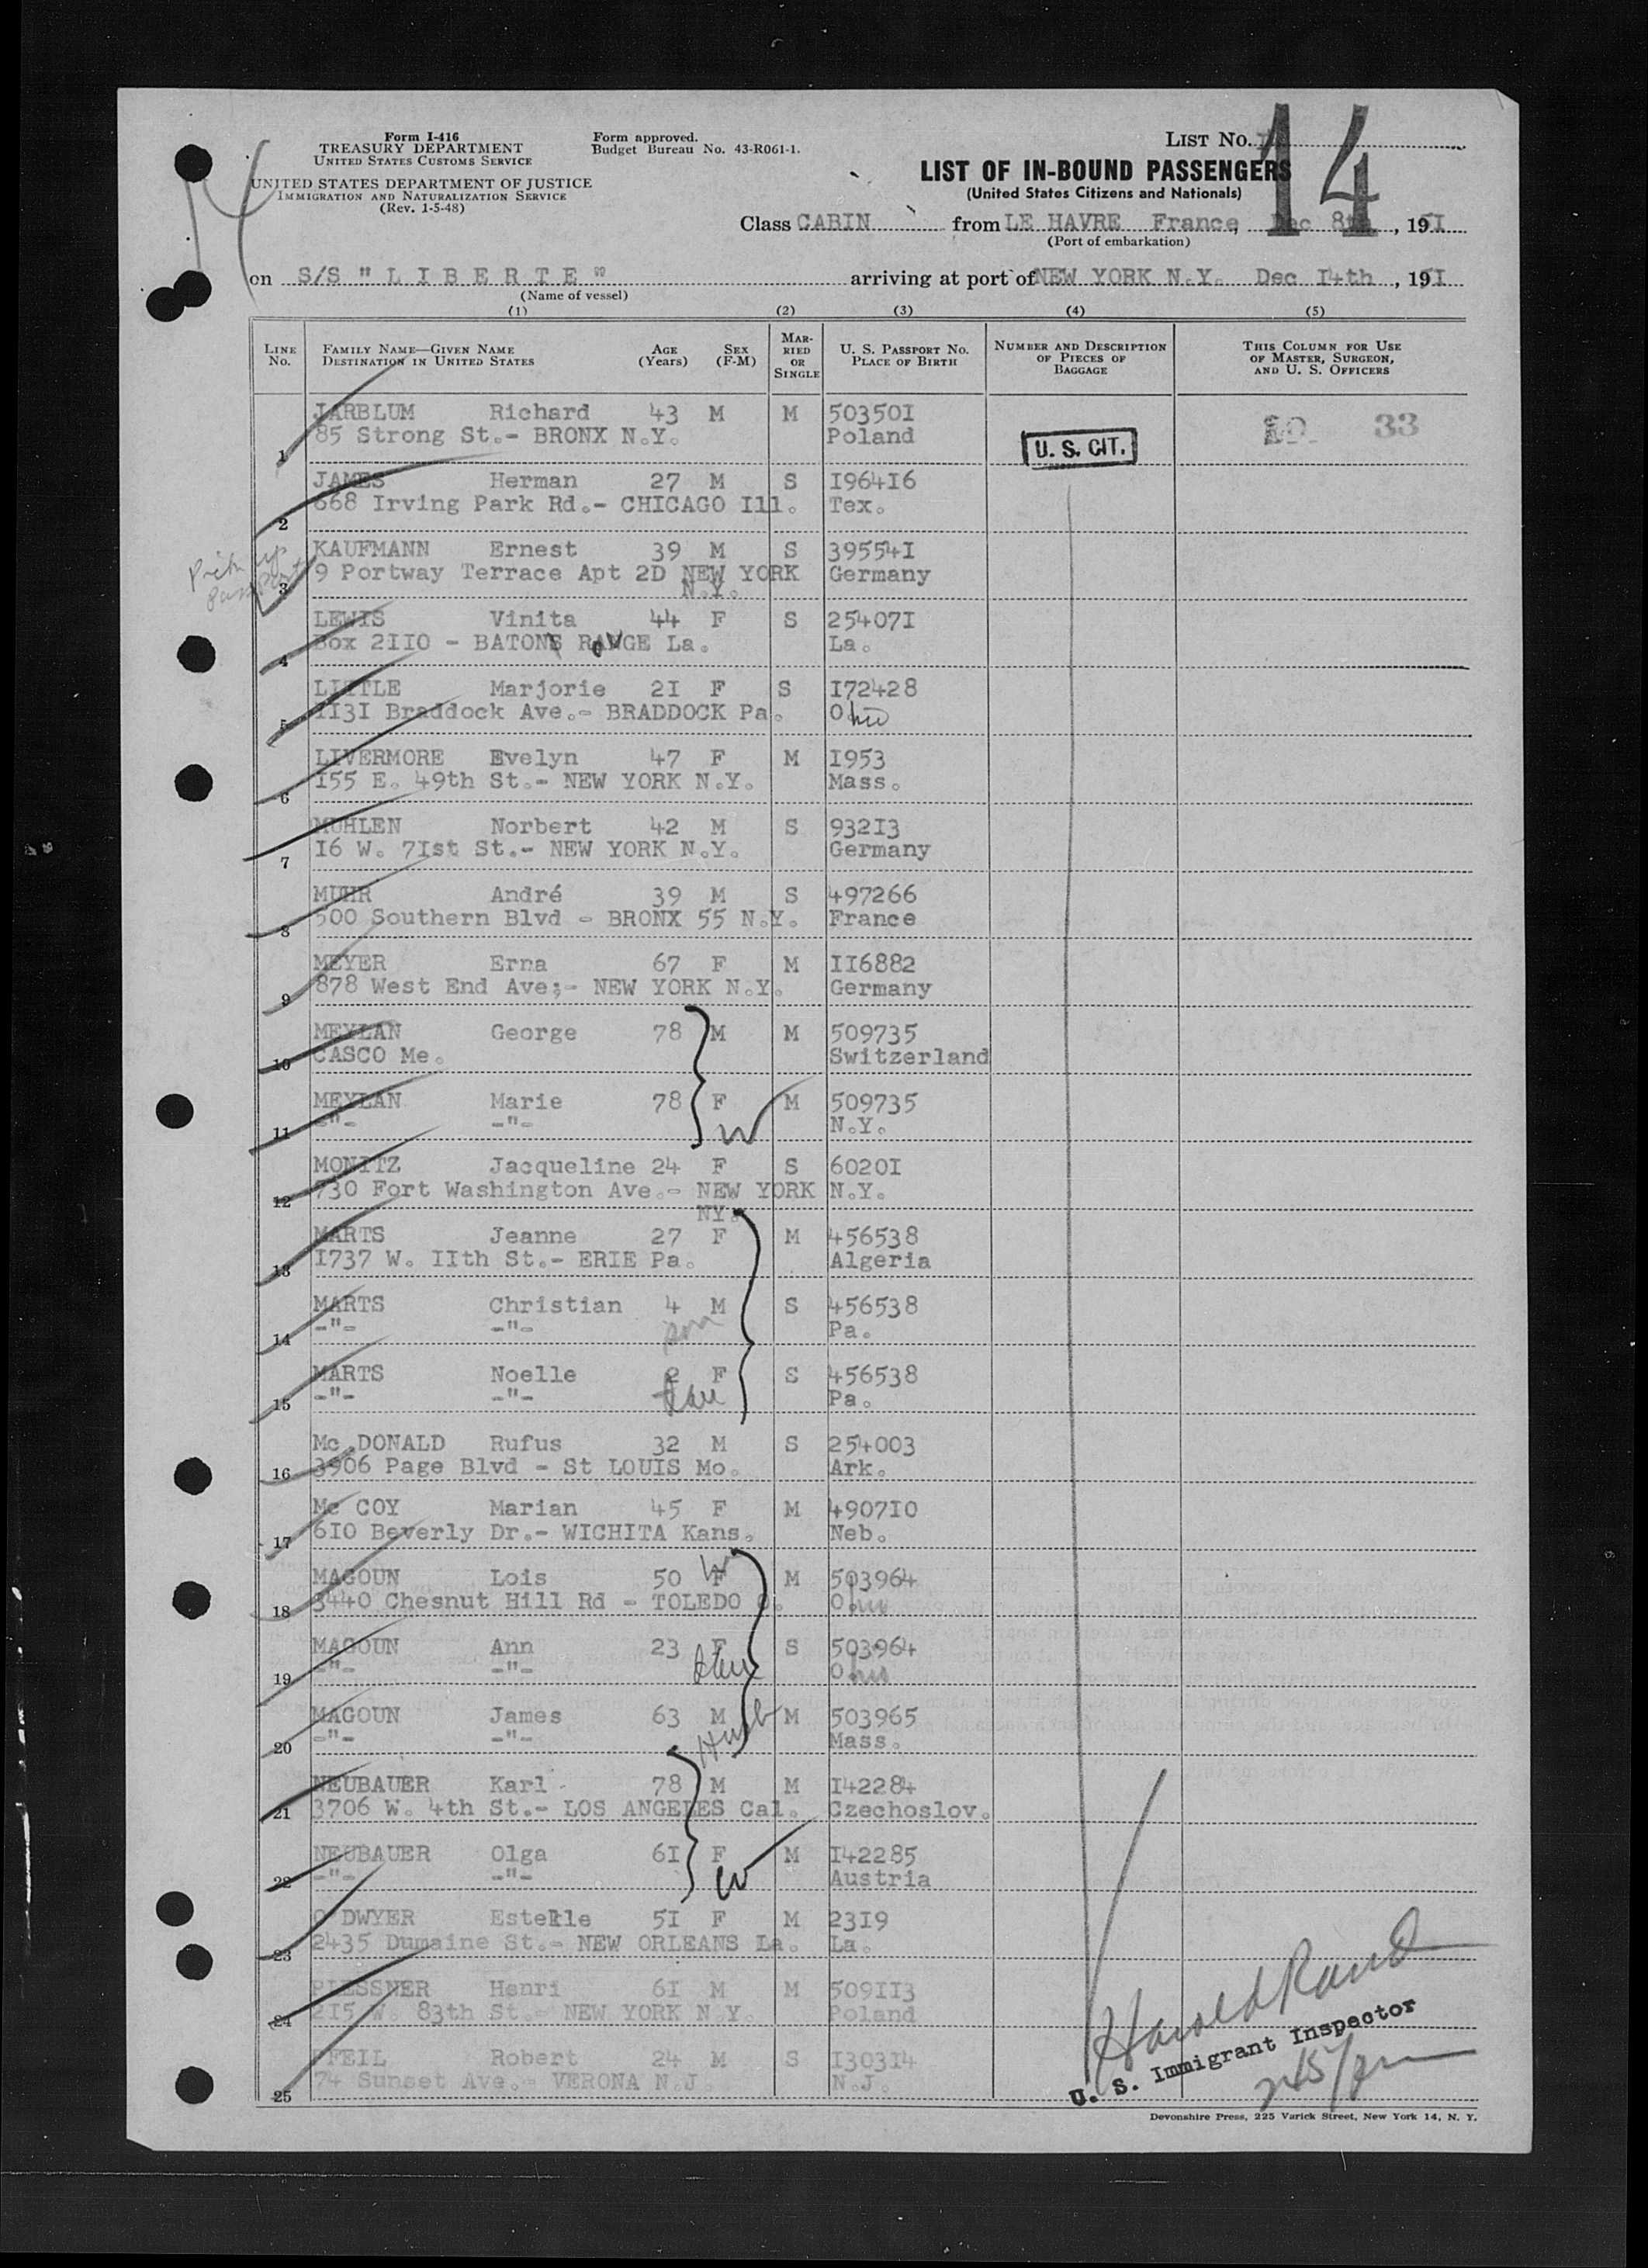 Form I-416
TREASURY DEPARTMENT
UNITED STATES CUSTOMS SERVICE
UNITED STATES DEPARTMENT OF JUSTICE
IMMIGRATION AND NATURALIZATION SERVICE
(Rev. 1-5-48)
Form approved.
Budget Bureau No. 43-R061-1.
LIST No. 14
14
LIST OF IN-BOUND PASSENGERS
(United States Citizens and Nationals)
Class CABIN from LE HAVRE France, Dec 8th, 1951
(Port of embarkation)
on S/S " L I B E R T E " arriving at port of NEW YORK N.Y. Dec 14th, 1951
(Name of vessel)
(1) (2) (3) (4) (5)
LINE No. FAMILY NAME—GIVEN NAME DESTINATION IN UNITED STATES AGE (Years) SEX (F-M) MARRIED OR SINGLE U. S. PASSPORT No. PLACE OF BIRTH NUMBER AND DESCRIPTION OF PIECES OF BAGGAGE THIS COLUMN FOR USE OF MASTER, SURGEON, AND U. S. OFFICERS
JARBLUM Richard 43 M M 503501 33
1 85 Strong St.- BRONX N.Y. Poland U. S. CIT.
JAMES Herman 27 M S 196416
2 668 Irving Park Rd.- CHICAGO Ill. Tex.
KAUFMANN Ernest 39 M S 395541
Pick up Passport
3 9 Portway Terrace Apt 2D NEW YORK Germany
N.Y.
LEWIS Vinita 44 F S 254071
4 Box 2110 - BATONS ROUGE La. La.
LITTLE Marjorie 21 F S 172428
5 1131 Braddock Ave.- BRADDOCK Pa. Ohio
LIVERMORE Evelyn 47 F M 1953
6 155 E. 49th St.- NEW YORK N.Y. Mass.
MUHLEN Norbert 42 M S 93213
7 16 W. 71st St.- NEW YORK N.Y. Germany
MUHR André 39 M S 497266
8 500 Southern Blvd - BRONX 55 N.Y. France
MEYER Erna 67 F M 116882
9 878 West End Ave;- NEW YORK N.Y. Germany
MEYLAN George 78 M M 509735
10 CASCO Me. Switzerland
MEYLAN Marie 78 F M 509735
11 -"- -"- W N.Y.
MONITZ Jacqueline 24 F S 60201
12 730 Fort Washington Ave.- NEW YORK N.Y.
NY.
MARTS Jeanne 27 F M 456538
13 1737 W. 11th St.- ERIE Pa. Algeria
MARTS Christian 4 M S 456538
14 -"- -"- son Pa.
MARTS Noelle 2 F S 456538
15 -"- -"- dau Pa.
Mc DONALD Rufus 32 M S 254003
16 3906 Page Blvd - St LOUIS Mo. Ark.
Mc COY Marian 45 F M 490710
17 610 Beverly Dr.- WICHITA Kans. Neb.
MAGOUN Lois 50 W F M 503964
18 3440 Chesnut Hill Rd - TOLEDO O. Ohio
MAGOUN Ann 23 F S 503964
19 -"- -"- dau Ohio
MAGOUN James 63 M M 503965
20 -"- -"- Husb Mass.
NEUBAUER Karl 78 M M 142284
21 3706 W. 4th St.- LOS ANGELES Cal. Czechoslov.
NEUBAUER Olga 61 F M 142285
22 -"- -"- W Austria
O DWYER Estelle 51 F M 2319
23 2435 Dumaine St.- NEW ORLEANS La. La.
PLESSNER Henri 61 M M 509113
24 215 W. 83th St.- NEW YORK N Y. Poland
PFEIL Robert 24 M S 130314
25 74 Sunset Ave.- VERONA N.J N.J.
Harold Rand
U. S. Immigrant Inspector
245/pm
Devonshire Press, 225 Varick Street, New York 14, N. Y.